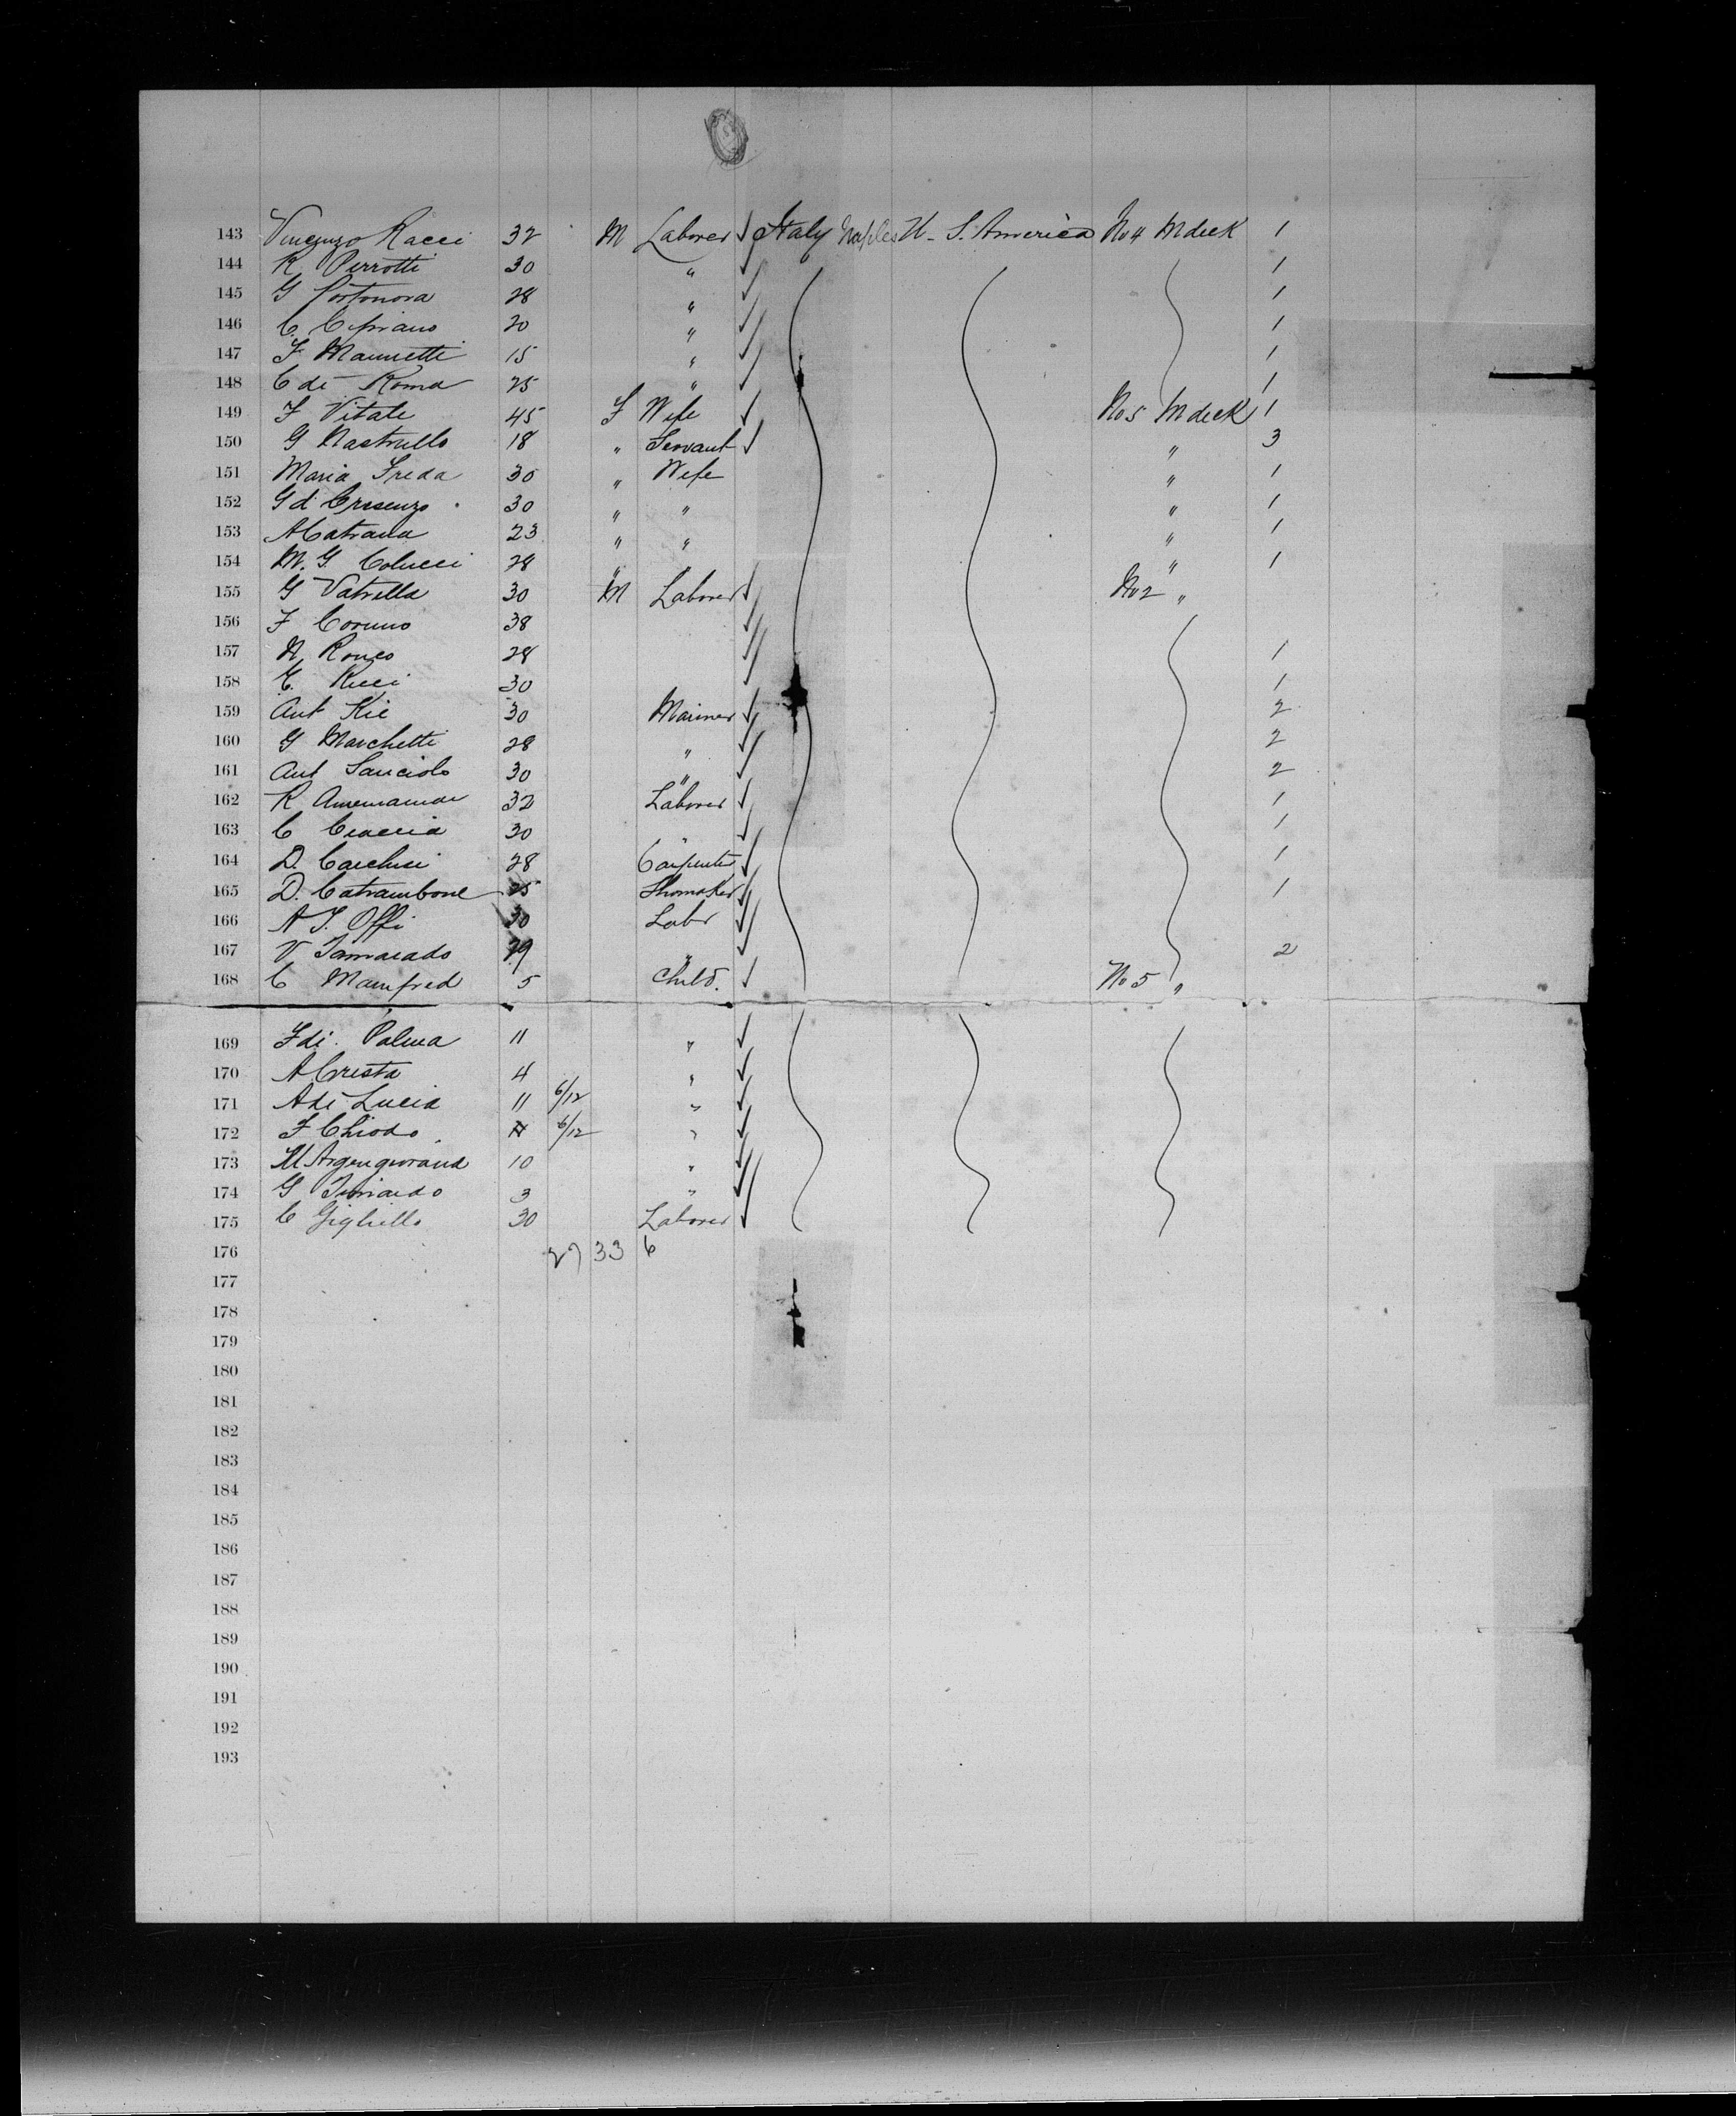 143 Vincenzo Racci 32 M Laborer ✓ Italy Naples U. S. America No 4 M deck 1
144 R Perrotti 30 " ✓ 1
145 G Portonova 28 " ✓ 1
146 C. Cipriano 20 " ✓ 1
147 F Mannetti 15 " ✓ 1
148 C di Roma 25 " ✓ 1
149 F Vitale 45 F Wife ✓ No 5 M deck 1
150 G Nastrullo 18 " Servant ✓ " 3
151 Maria Freda 30 " Wife " 1
152 G d Crisenzo 30 " " " 1
153 A Catrana 23 " " " 1
154 M. G. Colucci 28 " " 1
155 G Vatrella 30 M Laborer ✓ No 2 "
156 F Coruno 38 ✓
157 N Ronco 28 ✓ 1
158 C. Ricci 30 ✓ 1
159 Ant 30 Mariner ✓ 2
160 G Marchetti 28 " ✓ 2
161 Ant Sanciolo 30 " ✓ 2
162 R 32 Laborer ✓ 1
163 C 30 " ✓ 1
164 D. 28 Carpenter ✓ 1
165 D. Catrambone 25 Shomaker ✓ 1
166 A F. Offi 30 Labr ✓
167 V 29 " ✓ 2
168 C Manfred 5 Child. ✓ No 5 "
169 F di Palma 11 " ✓
170 A Cresta 4 " ✓
171 A di Lucia 11 6/12 " ✓
172 F Chiodo 6/12 " ✓
173 M 10 " ✓
174 G 3 " ✓
175 C Gigliello 30 Laborer ✓
176 27 33 6
177
178
179
180
181
182
183
184
185
186
187
188
189
190
191
192
193